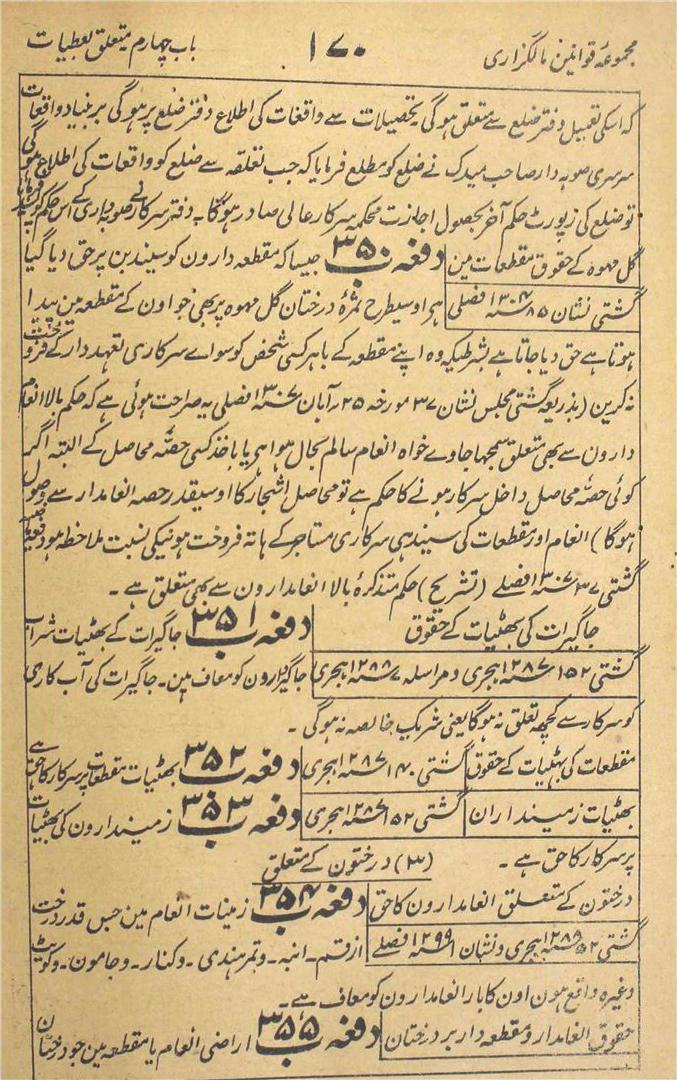 مجموعۂ قوانین مالگزاری ۱۷۰ باب چہارم متعلق بعطیات
کہ اسکی تعمیل دفتر ضلع سے متعلق ہوگی تحصیلات سے واقعات کی اطلاع دفتر ضلع پر ہوگی بربنیاد واقعات
سرسری صوبہ دار صاحب میدک نے ضلع کو مطلع فرمایا کہ جب تعلقہ سے ضلع کو واقعات کی اطلاع ہوگی
تو ضلع کی رپورٹ حکم آخر بحصول اجازت محکمہ سرکار عالی صادر ہوگا۔ دفتر سرکار نے صوبہ داری کے اس حکم کو
گل مہوہ کے حقوق مقطعات مین دفعہ ۳۵۰ جیسا کہ مقطعہ دارون کو سیندبن پر حق دیا گیا
گشتی نشان ۸۵ ۱۳۰۴ فصلی ہر اوسیطرح ثمرۂ درختان گل مہوہ پر بھی جو اون کے مقطعہ مین پیدا
ہوتا ہے حق دیا جاتا ہے بشرطیکہ وہ اپنے مقطعہ کے باہر کسی شخص کو سواے سرکاری تعہد دار کے فروخت
نہ کرین (بذریعہ گشتی مجلس نشان ۳۷ مورخہ ۲۵ آبان ۱۳۰۷ فصلی یہ صراحت ہوئی ہے کہ حکم بالا انعام
دارون سے بھی متعلق سمجہا جاوے خواہ انعام سالم بحال ہوا ہو یا باخذ کسی حصّہ محاصل کے البتہ اگر
کوئی حصّہ محاصل داخل سرکار ہونے کا حکم ہے تو محاصل اشجار کا اوسیقدر حصہ انعامدار سے وصول
ہوگا) انعام اور مقطعات کی سیندہی سرکاری مستاجر کے ہاتہ فروخت ہونیکی نسبت ملاحظہ ہو دفعہ
گشتی ۳۷ ۱۳۰۷ فصلے (تشریح) حکم متذکرۂ بالا انعامدارون سے بھی متعلق ہے۔
جاگیرات کی بھٹیات کے حقوق دفعہ ۳۵۱ جاگیرات کے بھٹیات شراب
گشتی ۱۵۲ ۱۲۸۷ ہجری و مراسلہ ۷ ۱۲۸۸ ہجری جاگیردارون کو معاف ہین۔ جاگیرات کی آب کاری
کو سرکار سے کچھ تعلق نہ ہوگا یعنی شریک خالصہ نہ ہوگی۔
مقطعات کی بہٹیات کے حقوق گشتی ۱۴۰ ۱۲۸۷ ہجری دفعہ ۳۵۲ بھٹیات مقطعات پر سرکار کا حق ہے
بھٹیات زمینداران گشتی ۱۵۲ ۱۲۸۷ ہجری دفعہ ۳۵۳ زمیندارون کی بھٹیات
پر سرکار کا حق ہے۔
(۳) درختون کے متعلق
درختون کے متعلق انعامدارون کا حق دفعہ ۳۵۴ زمینات انعام مین جس قدر درخت
گشتی ۵۲ ۱۲۸۹ ہجری و نشان ۱ ۱۲۹۹ فصلے از قسم۔ انبہ۔ و تمرہندی۔ و کنار۔ و جامون۔ و کویٹ
وغیرہ واقع ہون اون کا بار انعامدارون کو معاف ہے۔
حقوق انعامدار و مقطعہ دار بر درختان دفعہ ۳۵۵ اراضی انعام یا مقطعہ مین جو درختان